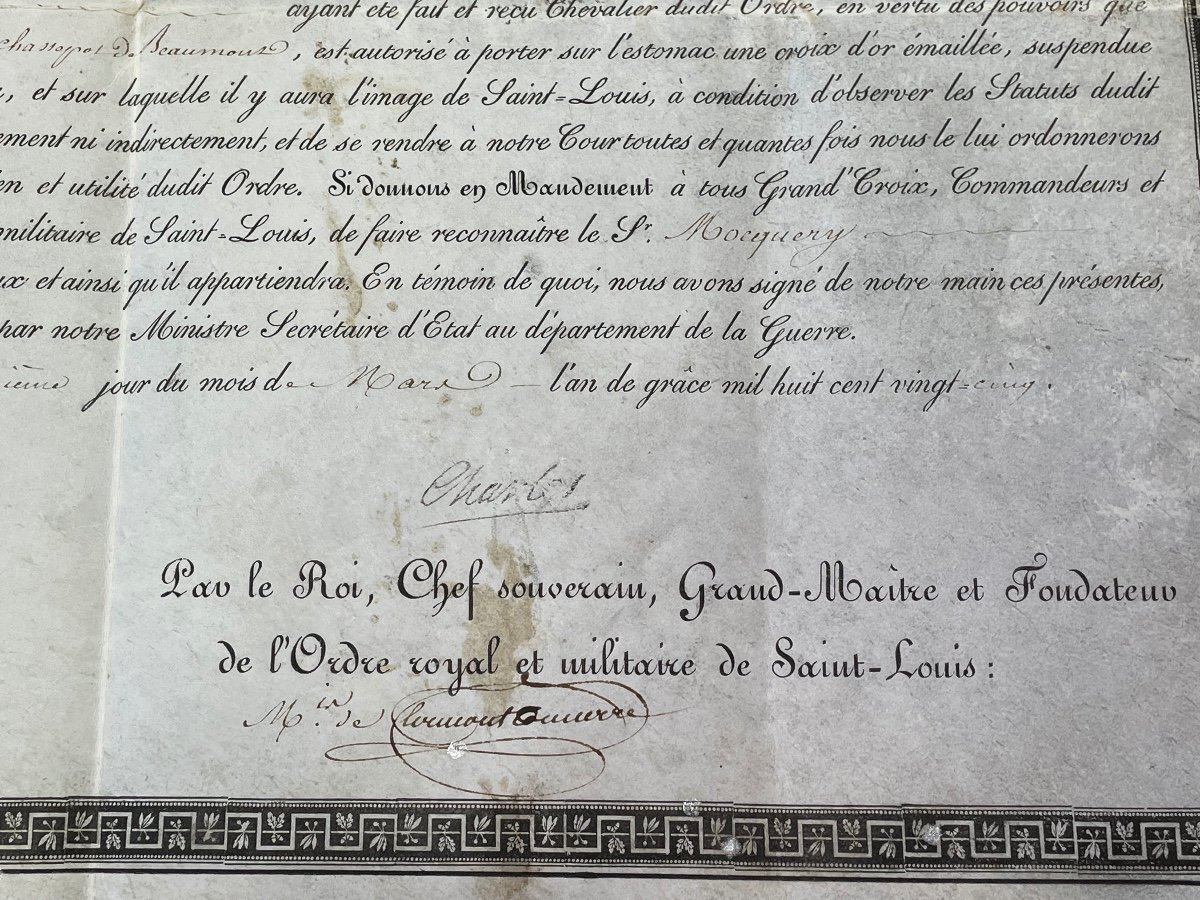 ayant été fait et reçu Chevalier dudit Ordre, en vertu des pouvoirs que
de Beaumont, est autorisé à porter sur l'estomac une croix d'or émaillée, suspendue
, et sur laquelle il y aura l'image de Saint-Louis, à condition d'observer les Statuts dudit
ement ni indirectement, et de se rendre à notre Cour toutes et quantes fois nous le lui ordonnerons
en et utilité dudit Ordre. Si donnons en Mandement à tous Grand'Croix, Commandeurs et
militaire de Saint-Louis, de faire reconnaître le Sr. Mocquery
ux et ainsi qu'il appartiendra. En témoin de quoi, nous avons signé de notre main ces présentes,
par notre Ministre Secrétaire d'Etat au département de la Guerre.
ième jour du mois de Mars l'an de grâce mil huit cent vingt-cinq.
Charles
Par le Roi, Chef souverain, Grand-Maître et Fondateur
de l'Ordre royal et militaire de Saint-Louis :
Mis de Clermont Tonnerre